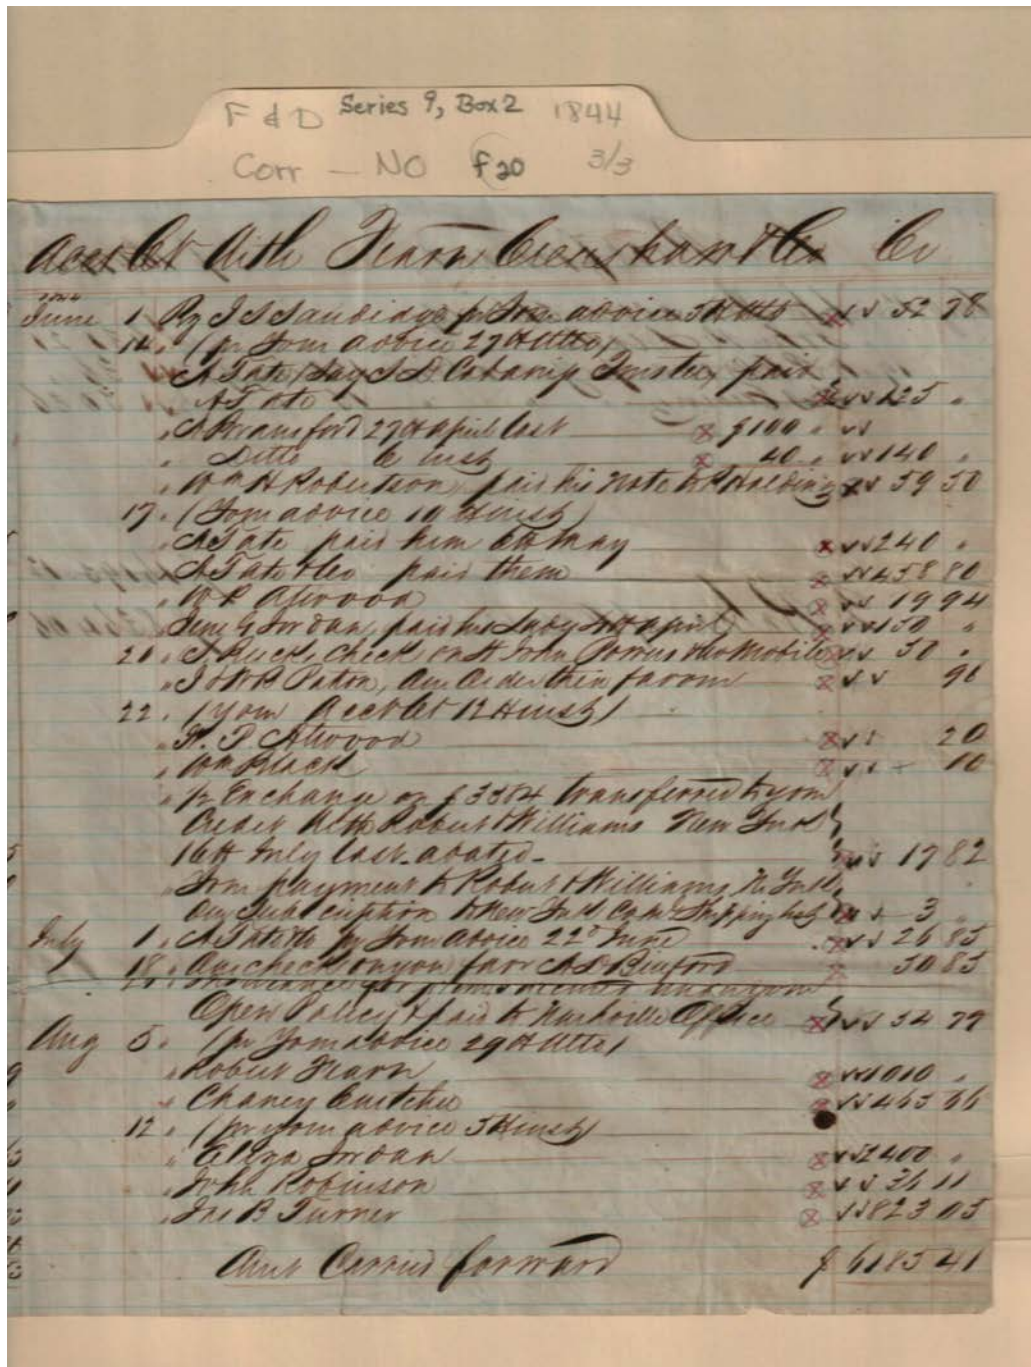 F & D Series 9, Box 2 1844
Corr — NO f20 3/3
Acct Ct With Fearn Crenshaw & Co Cr
June 1 By J S advice 5H Ulto 52 78
14 " (pr Your advice 29H Ulto)
A Tate (Say S D Cabaniss Trustee, paid
A Tate 125 "
" A Bransford 27H April last $100 "
" Ditto 6 inst 40 " 140 "
" Wm H Robertson, paid his Note to Holding 59 50
17 " (Your advice 10 H inst)
" A Tate paid him 6H May 240 "
" A Tate & Co paid them 458 80
" W P Atwood 19 94
" G Jordan, paid his Lady H April 150 "
20 " check on St John Powers & Co Mobile 50 "
" J & W B Paton, Our Order their favour 96
22 " (your Acct Ct 12 H inst)
" W. P. Atwood 20
" Wm Black 10
" pr Exchange on $3384 transferred to your
Credit With Robert & Williams New York
16H July last. abated 17 82
" Your payment to Robert & Williams, N. York
Our Subscription to New York Coml & Shipping list 3 "
July 1 " A Tate & Co pr Your advice 22d June 26 85
18 " Our check on you favr A D Binford 50 85
Insurance for
Open Policy & paid to Nashville Office 54 79
Aug 5 " (pr Your advice 29H Ulto)
" Robert Fearn 1010 "
" Chaney 465 66
12 " (pr your advice 5H inst)
" Eliza Jordan 2400 "
" John Robinson 36 11
" Jno B Turner 823 05
Amt Carried forward $ 6185 41